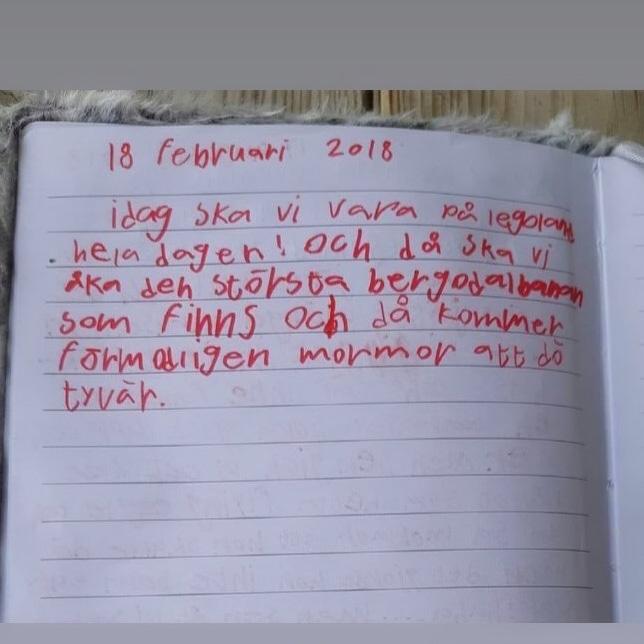 18 februari 2018
idag ska vi vara på legoland
hela dagen! och då ska vi
åka den största bergodalbanan
som finns och då kommer
förmodligen mormor att dö
tyvär.